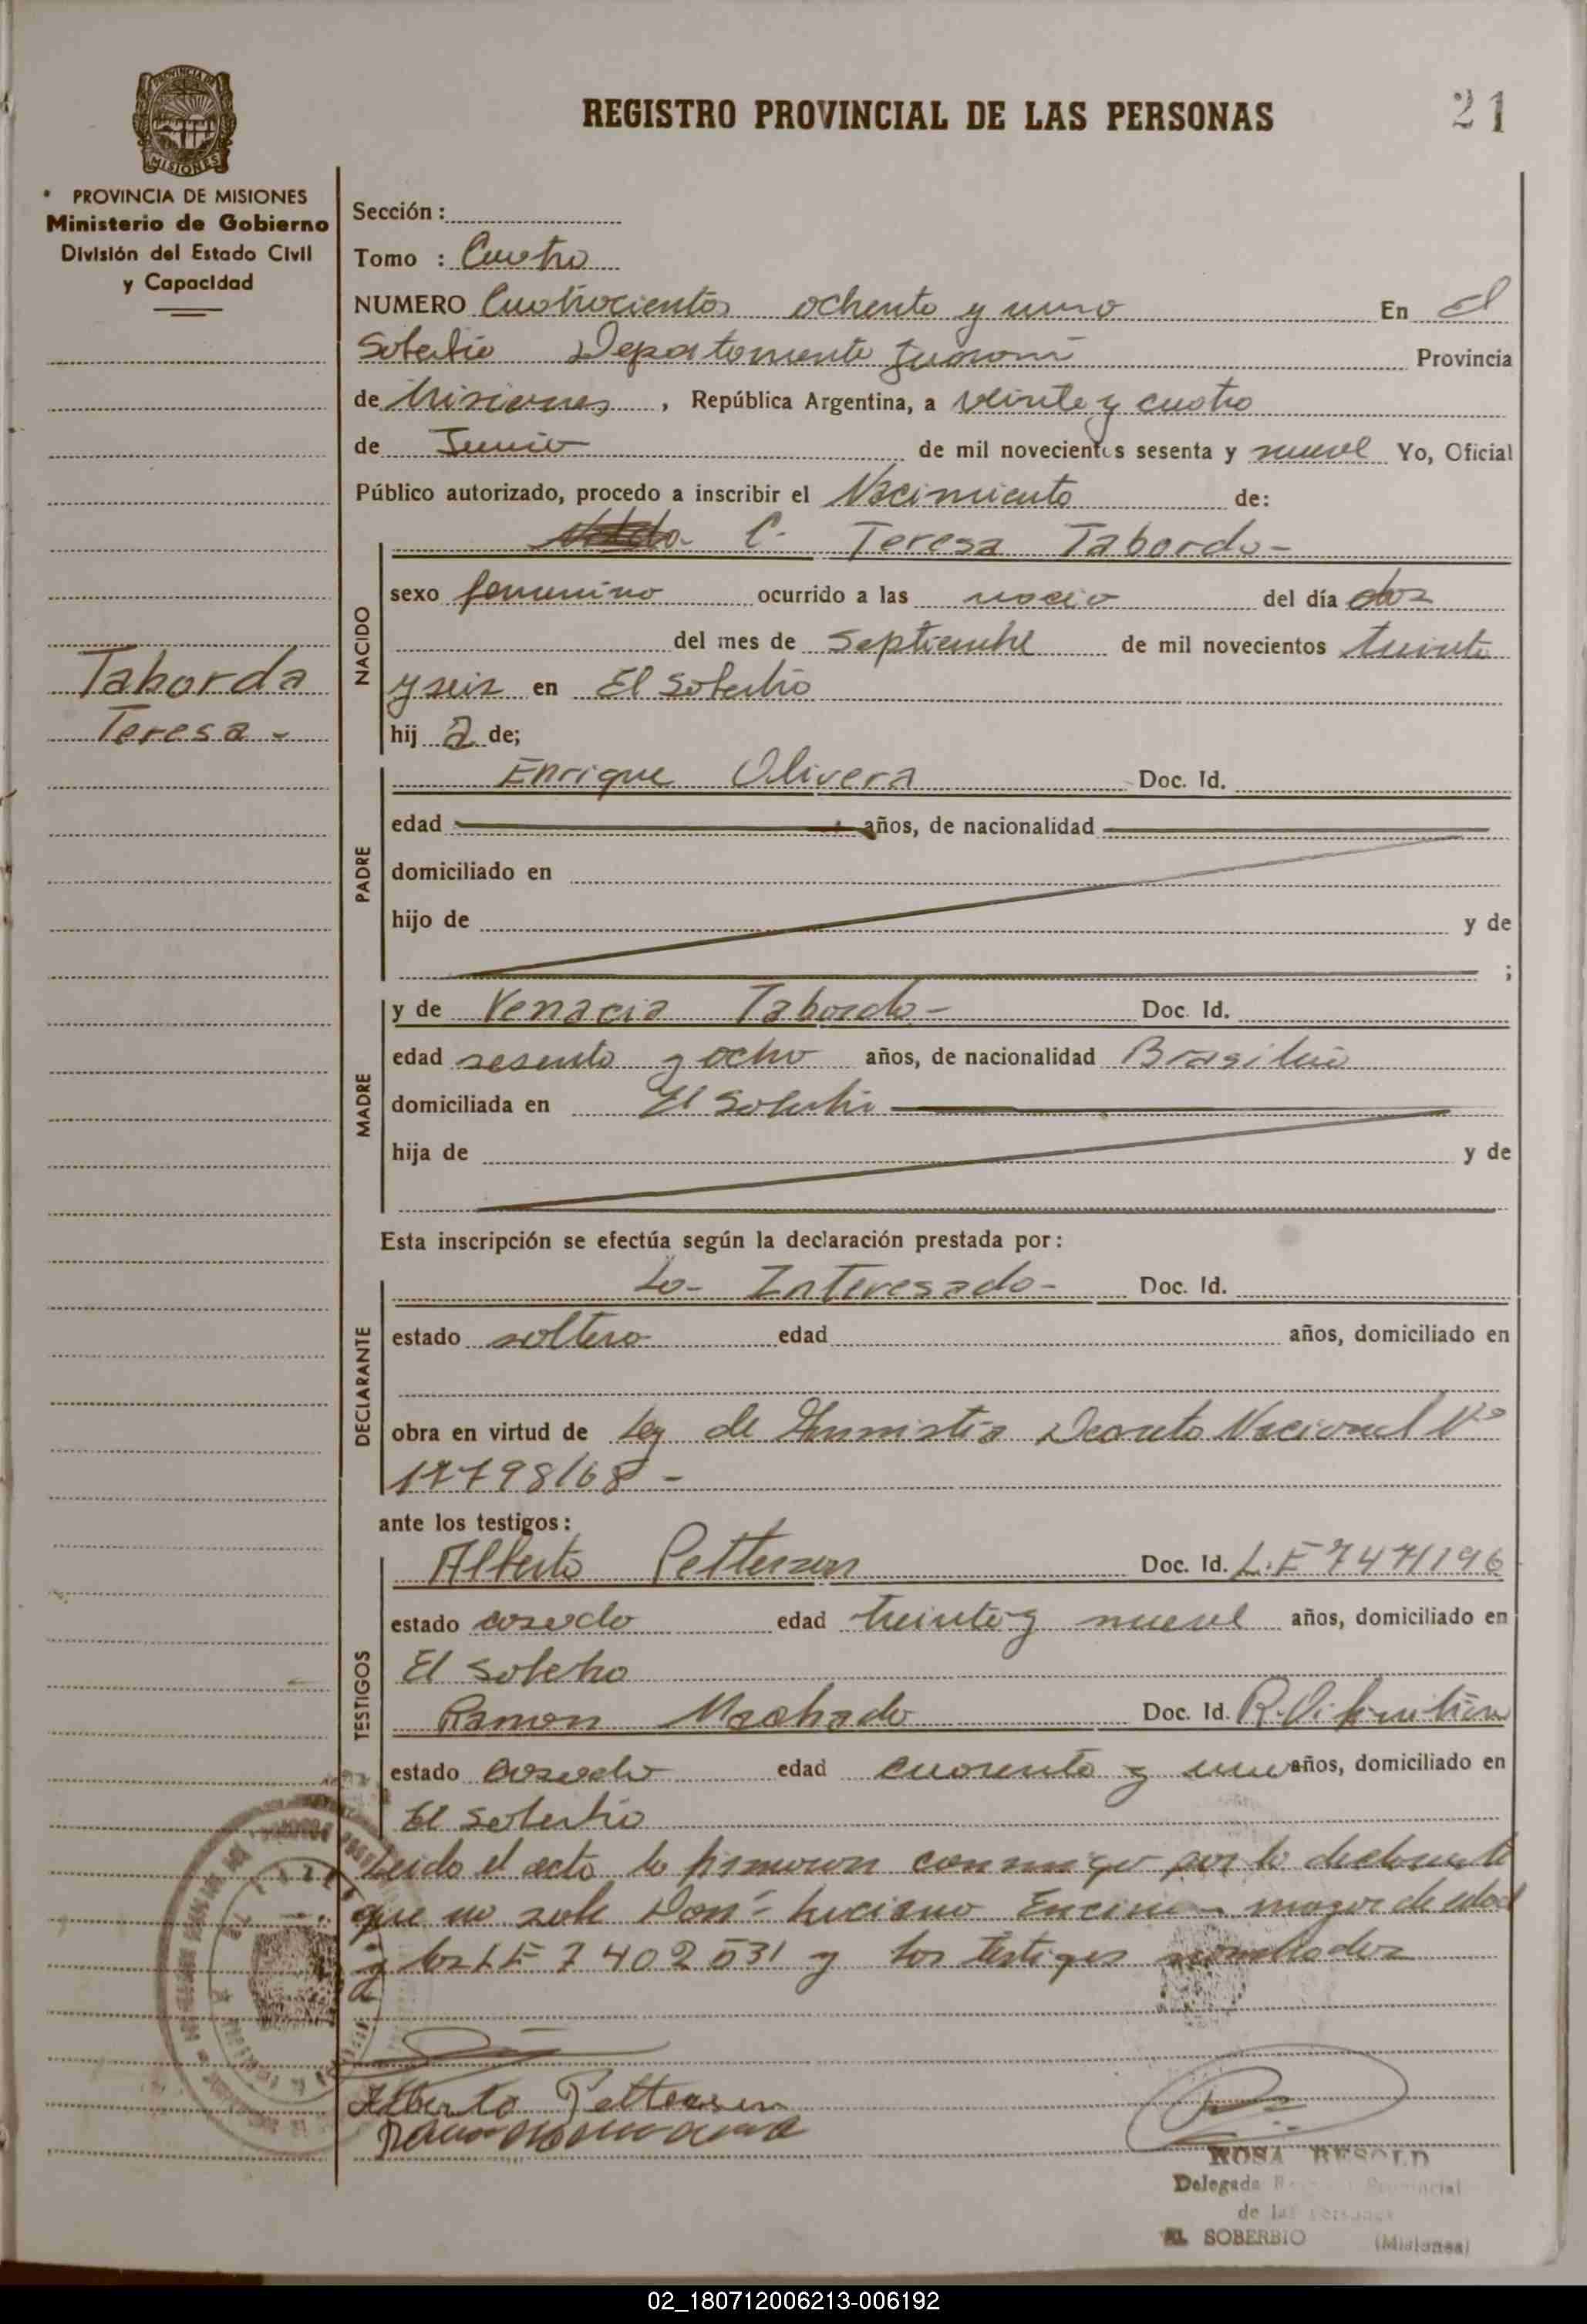 PROVINCIA DE MISIONES
REGISTRO PROVINCIAL DE LAS PERSONAS
21
PROVINCIA DE MISIONES
Ministerio de Gobierno
División del Estado Civil
y Capacidad
Sección :
Tomo : Cuatro
NUMERO Cuatrocientos ochenta y uno En El
Soberbio Departamento Guaraní Provincia
de Misiones, República Argentina, a veinte y cuatro
de Junio de mil novecientos sesenta y nueve Yo, Oficial
Público autorizado, procedo a inscribir el Nacimiento de:
Teresa Taborda -
NACIDO
sexo femenino ocurrido a las nació del día dos
del mes de Septiembre de mil novecientos treinta
y seis en El Soberbio
Taborda
Teresa -
hij a de;
PADRE
Enrique Olivera Doc. Id.
edad años, de nacionalidad
domiciliado en
hijo de y de
;
MADRE
y de Venacia Taborda - Doc. Id.
edad sesenta y ocho años, de nacionalidad Brasilera
domiciliada en El Soberbio
hija de y de
Esta inscripción se efectúa según la declaración prestada por:
DECLARANTE
La Interesada - Doc. Id.
estado soltera edad años, domiciliado en
obra en virtud de Ley de Amnistia Decreto Nacional Nº
17798/68 -
ante los testigos:
TESTIGOS
Alberto Petterson Doc. Id. L.E 7471196
estado casado edad treinta y nueve años, domiciliado en
El Soberbio
Ramon Machado Doc. Id. R.
estado casado edad cuarenta y uno años, domiciliado en
El Soberbio
Leido el acta la firmaron conmigo por la declarante
que no sabe Don Luciano Encina mayor de edad
L E 7402531 y los testigos nombrados
Alberto Petterson
ROSA BESOLD
Delegada Provincial
de las Personas
EL SOBERBIO (Misiones)
02_180712006213-006192